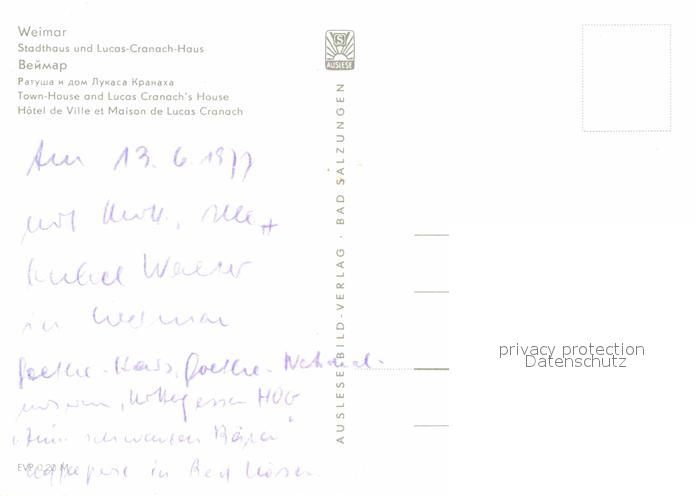 Weimar
Stadthaus und Lucas-Cranach-Haus
Веймар
Ратуша и дом Лукаса Кранаха
Town-House and Lucas Cranach's House
Hôtel de Ville et Maison de Lucas Cranach
AUSLESE
AUSLESE-BILD-VERLAG · BAD SALZUNGEN
Am 13. 6. 1977
mit
Onkel Werner
in Weimar
Goethe-Haus, Goethe-National-
museum, Mittagessen HOG
"Zum schwarzen Bären"
in Bad Kösen
EVP 0,20 M
privacy protection
Datenschutz